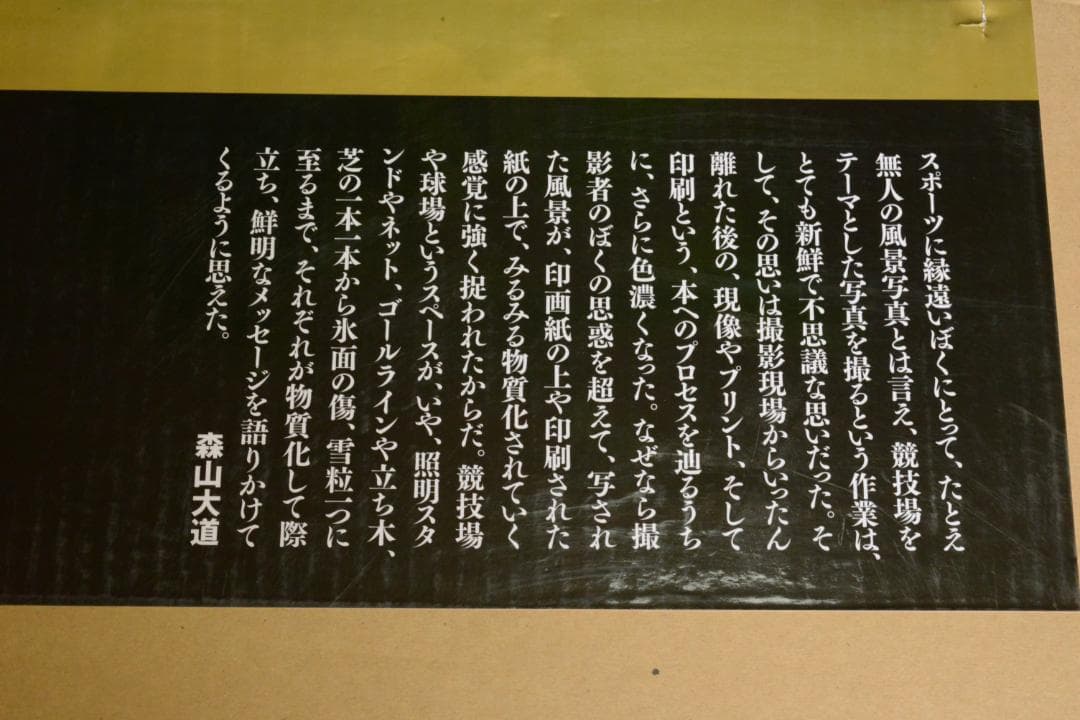 スポーツに縁遠いぼくにとって、たとえ
無人の風景写真とは言え、競技場を
テーマとした写真を撮るという作業は、
とても新鮮で不思議な思いだった。そ
して、その思いは撮影現場からいったん
離れた後の、現像やプリント、そして
印刷という、本へのプロセスを辿るうち
に、さらに色濃くなった。なぜなら撮
影者のぼくの思惑を超えて、写され
た風景が、印画紙の上や印刷された
紙の上で、みるみる物質化されていく
感覚に強く捉われたからだ。競技場
や球場というスペースが、いや、照明スタ
ンドやネット、ゴールラインや立ち木、
芝の一本一本から氷面の傷、雪粒一つに
至るまで、それぞれが物質化して際
立ち、鮮明なメッセージを語りかけて
くるように思えた。
森山大道